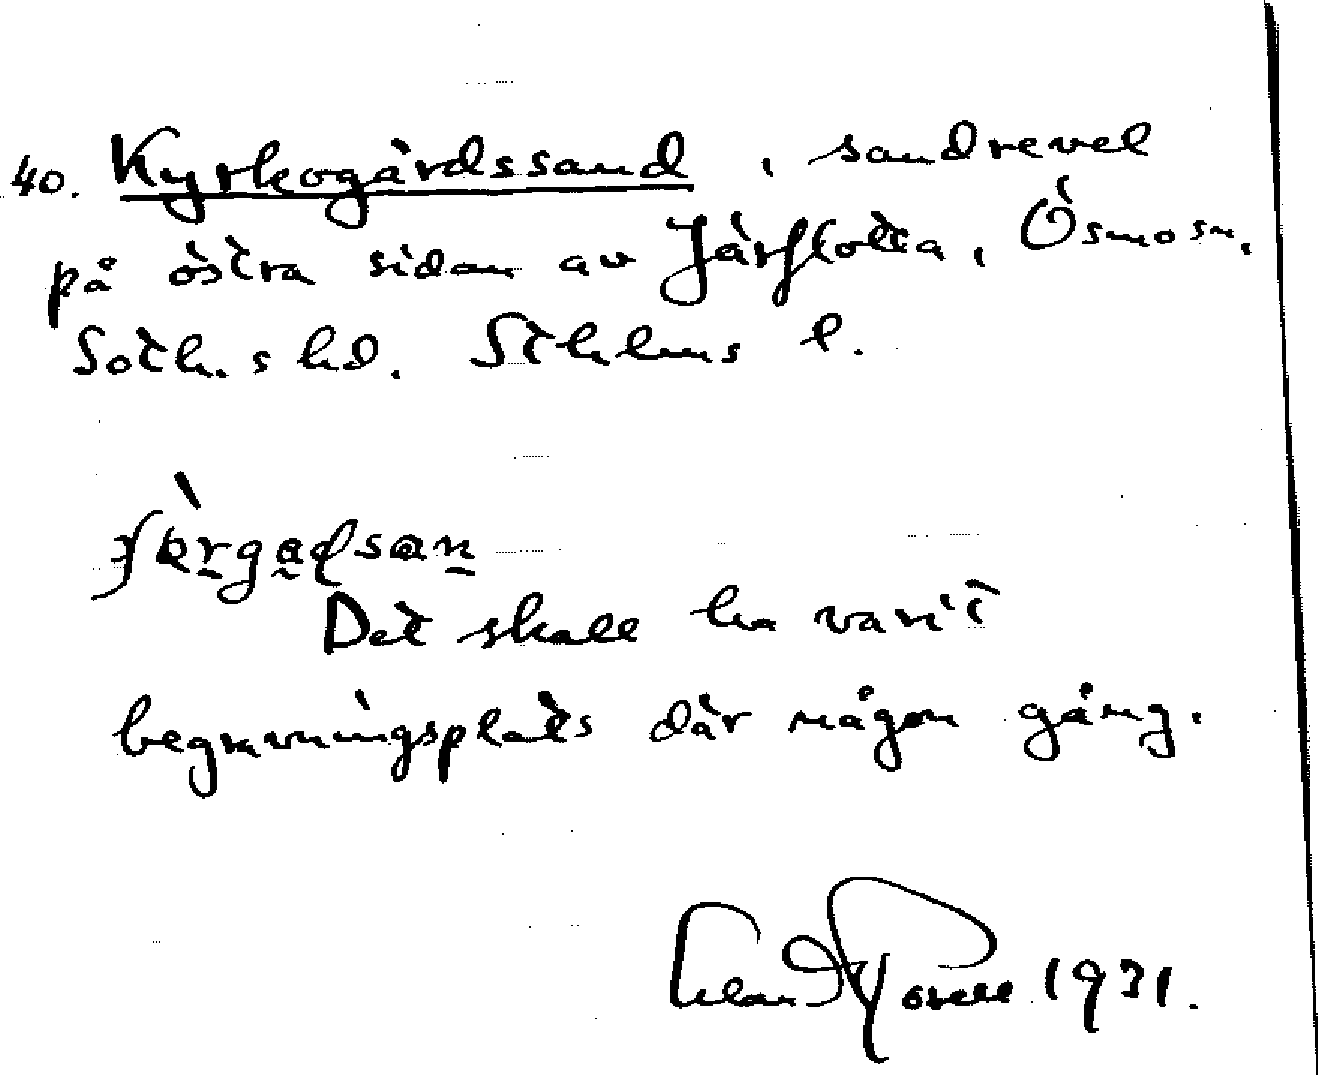 40. Kyrkogårdssand, sandrevel
på östra sidan av Järflotta, Ösmo sn,
Soth.s hd. Sthlms l.
Det skall ha varit
begravningsplats där någon gång.
1931.